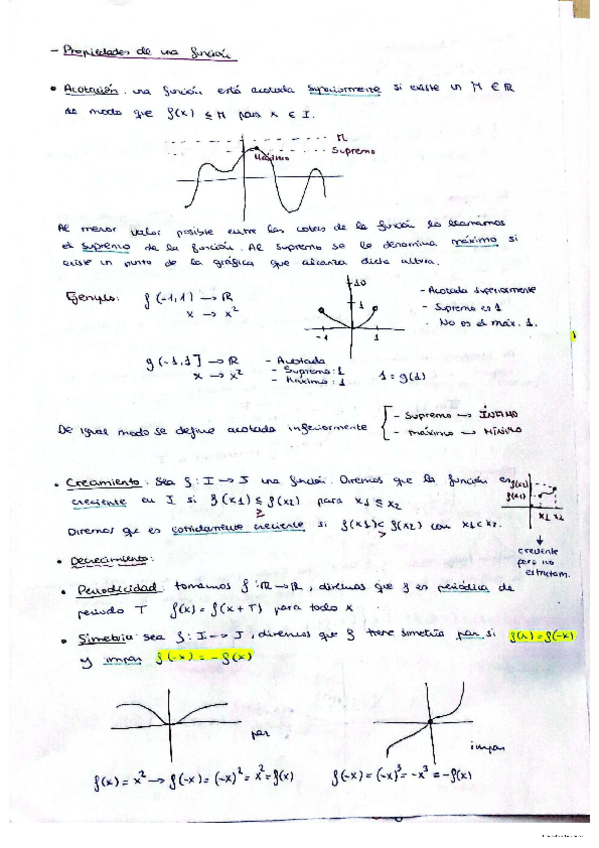 - Propiedades de una función
• Acotación. una función está acotada superiormente si existe un M ∈ ℝ
de modo que f(x) ≤ M para x ∈ I.
M
Supremo
Máximo
Al menor valor posible entre las cotas de la función lo llamamos
el supremo de la función. Al supremo se le denomina máximo si
existe un punto de la gráfica que alcanza dicha altura.
Ejemplo: f (-1,1) → ℝ
x → x²
1
-1 1
- Acotada superiormente
- Supremo es 1
- No es el máx. 1.
g (-1,1] → ℝ
x → x²
- Acotada
- Supremo: 1
- Máximo: 1
1 = g(1)
De igual modo se define acotada inferiormente
- Supremo → ÍNFIMO
- Máximo → MÍNIMO
• Crecimiento: Sea f: I → J una función. Diremos que la función es
creciente en I si f(x1) ≤ f(x2) para x1 ≤ x2
≥
Diremos que es estrictamente creciente si f(x1) < f(x2) con x1 < x2.
>
f(x2)
f(x1)
x1 x2
creciente
pero no
estrictam.
• Decrecimiento:
• Periodicidad: tomamos f: ℝ → ℝ, diremos que f es periódica de
periodo T f(x) = f(x+T) para todo x
• Simetría: sea f: I → J, diremos que f tiene simetría par si f(x) = f(-x)
y impar f(-x) = -f(x)
par
impar
f(x) = x² → f(-x) = (-x)² = x² = f(x)
f(-x) = (-x)³ = -x³ = -f(x)